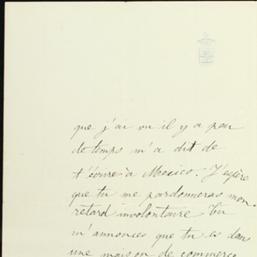 que j'ai vu il y a peu
de temps m'a dit de
t'écrire à Mexico. J'espère
que tu me pardonneras mon
retard involontaire Tu
m'annonces que tu es dans
une maison de commerce